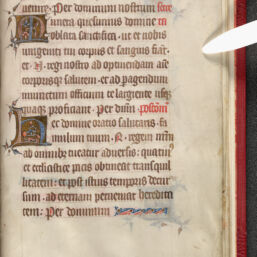 uenire. Per dominum nostrum secre
Munera quesumus domine ta
oblata sanctifica. ut et nobis
unigeniti tui corpus et sanguis fiat.
et .N. regi nostro ad optinendam aie
corporisqz salutem. et ad pagendum
iniunctum officium te largiente usqz
quaqz proficiant. Per dnm. postcom
Hec domine oratio salutaris. fa
mulum tuum .N. regem nrm
ab omnibz tueatur aduersis: quatin
et ecclesiastice pacis obtineat tranquil
litatem: et post istius temporis decur
sum. ad eternam perueniat heredita
tem: Per dominum